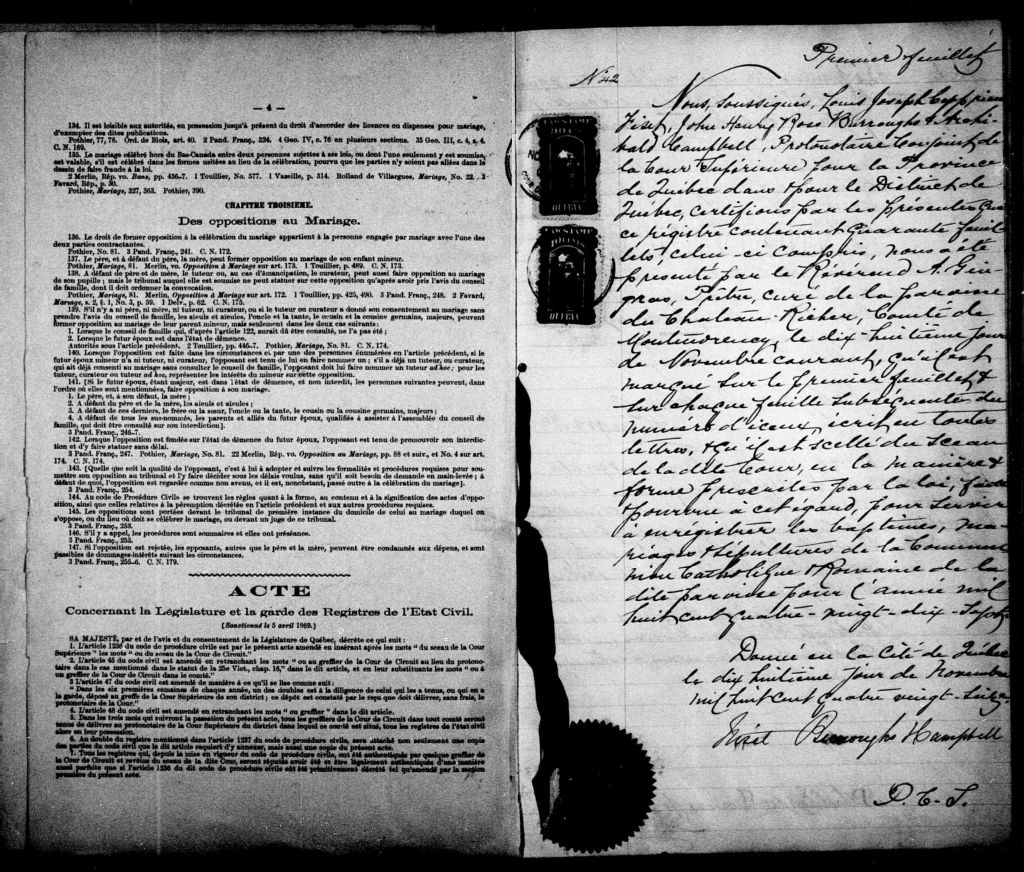 — 4 —
134. Il est loisible aux autorités, en possession jusqu'à présent du droit d'accorder des licences ou dispenses pour mariage,
d'exempter des dites publications.
Pothier, 77, 78. Ord. de Blois, art. 40. 2 Pand. Franç., 324. 4 Geo. IV, c. 76 en plusieurs sections. 35 Geo. III, c. 4, s. 4.
C. N. 169.
135. Le mariage célébré hors du Bas-Canada entre deux personnes sujettes à ses lois, ou dont l'une seulement y est soumise,
est valable, s'il est célébré dans les formes usitées au lieu de la célébration, pourvu que les parties n'y soient pas allées dans le
dessein de faire fraude à la loi.
2 Merlin, Rép. vo. Bans, pp. 436-7. 1 Touillier, No. 577. 1 Vazeille, p. 314. Rolland de Villargues, Mariage, No. 22. 3
Favard, Rép., p. 30.
Pothier, Mariage, 327, 363. Pothier, 390.
CHAPITRE TROISIEME.
Des oppositions au Mariage.
136. Le droit de former opposition à la célébration du mariage appartient à la personne engagée par mariage avec l'une des
deux parties contractantes.
Pothier, No. 81. 3 Pand. Franç., 241. C. N. 172.
137. Le père, et à défaut du père, la mère, peut former opposition au mariage de son enfant mineur.
Pothier, Mariage, 81. Merlin, vo. Opposition à Mariage sur art. 173. 1 Touillier, p. 489. C. N. 173.
138. A défaut de père et de mère, le tuteur ou, au cas d'émancipation, le curateur, peut aussi faire opposition au mariage
de son pupille; mais le tribunal auquel elle est soumise ne peut statuer sur cette opposition qu'après avoir pris l'avis du conseil
de famille, dont il doit ordonner la convocation.
Pothier, Mariage, 81. Merlin, Opposition à Mariage sur art. 172. 1 Touillier, pp. 425, 490. 3 Pand. Franç., 248. 2 Favard,
Mariage, s. 2, § 1, No. 3, p. 59. 1 Delv., p. 62. C. N. 175.
139. S'il n'y a ni père, ni mère, ni tuteur, ni curateur, ou si le tuteur ou curateur a donné son consentement au mariage sans
prendre l'avis du conseil de famille, les aïeuls et aïeules, l'oncle et la tante, le cousin et la cousine germains, majeurs, peuvent
former opposition au mariage de leur parent mineur, mais seulement dans les deux cas suivants:
1. Lorsque le conseil de famille qui, d'après l'article 122, aurait dû être consulté, ne l'a pas été;
2. Lorsque le futur époux est dans l'état de démence.
Autorités sous l'article précédent. 2 Touillier, pp. 446-7. Pothier, Mariage, No. 81. C. N. 174.
140. Lorsque l'opposition est faite dans les circonstances et par une des personnes énumérées en l'article précédent, si le
futur époux mineur n'a ni tuteur, ni curateur, l'opposant est tenu de lui en faire nommer un; s'il a déjà un tuteur, ou curateur,
qui ait déjà consenti au mariage sans consulter le conseil de famille, l'opposant doit lui faire nommer un tuteur ad hoc; pour les
tuteur, curateur ou tuteur ad hoc, représenter les intérêts du mineur sur cette opposition.
141. [Si le futur époux, étant majeur, est dans l'état de démence, et non interdit, les personnes suivantes peuvent, dans
l'ordre où elles sont mentionnées, faire opposition à son mariage.
1. Le père, et, à son défaut, la mère;
2. A défaut du père et de la mère, les aïeuls et aïeules;
3. A défaut de ces derniers, le frère ou la sœur, l'oncle ou la tante, le cousin ou la cousine germains, majeurs;
4. A défaut de tous les sus-nommés, les parents et alliés du futur époux, qualifiés à assister à l'assemblée du conseil de
famille, qui doit être consulté sur son interdiction].
3 Pand. Franç., 246-7.
142. Lorsque l'opposition est fondée sur l'état de démence du futur époux, l'opposant est tenu de promouvoir son interdic-
tion et d'y faire statuer sans délai.
3 Pand. Franç., 247. Pothier, Mariage, No. 81. 22 Merlin, Rép. vo. Opposition au Mariage, pp. 88 et suiv., et No. 4 sur art.
174. C. N. 174.
143. [Quelque que soit la qualité de l'opposant, c'est à lui à adopter et suivre les formalités et procédures requises pour sou-
mettre son opposition au tribunal et l'y faire décider sous les délais voulus, sans qu'il soit besoin de demande en main-levée; à
défaut de quoi, l'opposition est regardée comme non avenue, et il est, nonobstant, passé outre à la célébration du mariage].
3 Pand. Franç., 254.
144. Au code de Procédure Civile se trouvent les règles quant à la forme, au contenu et à la signification des actes d'oppo-
sition, ainsi que celles relatives à la péremption décrétée en l'article précédent et aux autres procédures requises.
145. Les oppositions sont portées devant le tribunal de première instance du domicile de celui au mariage duquel on
s'oppose, ou du lieu où doit se célébrer le mariage, ou devant un juge de ce tribunal.
3 Pand. Franç., 253.
146. S'il y a appel, les procédures sont sommaires et elles ont préséance.
3 Pand. Franç., 253.
147. Si l'opposition est rejetée, les opposants, autres que le père et la mère, peuvent être condamnés aux dépens, et sont
passibles de dommages-intérêts suivant les circonstances.
3 Pand. Franç., 255-6. C. N. 179.
ACTE
Concernant la Législature et la garde des Registres de l'Etat Civil.
[Sanctionné le 5 avril 1869.]
SA MAJESTÉ, par et de l'avis et du consentement de la Législature de Québec, décrète ce qui suit:
1. L'article 1236 du code de procédure civile est par le présent acte amendé en insérant après les mots "du sceau de la Cour
Supérieure" les mots "ou du sceau de la Cour de Circuit."
2. L'article 45 du code civil est amendé en retranchant les mots "ou au greffier de la Cour de Circuit au lieu du protono-
taire dans le cas mentionné dans le statut de la 25e Vict., chap. 16," dans le dit article, et en leur substituant les mots "ou à
un greffier de la Cour de Circuit dans le comté."
3 L'article 47 du code civil est amendé de manière à ce qu'il se lise comme suit:
"Dans les six premières semaines de chaque année, un des doubles est à la diligence de celui qui les a tenus, ou qui en a
la garde, déposé au greffe de la Cour Supérieure de son district; ce dépôt est constaté par le reçu que doit délivrer, sans frais, le
protonotaire de la Cour."
4. L'article 48 du code civil est amendé en retranchant les mots "ou greffier" dans le dit article.
5. Dans les trois mois qui suivront la passation du présent acte, tous les greffiers de la Cour de Circuit dans tout comté seront
tenus de délivrer au protonotaire de la Cour Supérieure du district dans lequel ce comté est situé, tous les registres de l'état civil
alors en leur possession.
6. Au double du registre mentionné dans l'article 1237 du code de procédure civile, sera attaché non seulement une copie
des parties du code civil que le dit article requiert d'y annexer, mais aussi une copie du présent acte.
7. Tous les registres qui, depuis la mise en vigueur du code de procédure civile, ont été authentiqués par quelque greffier de
la Cour de Circuit et revêtus du sceau de la dite Cour, seront réputés avoir été et être légalement authentiqués d'une manière
aussi parfaite que si l'article 1236 du dit code de procédure civile eût été primitivement décrété tel qu'amendé par la section
première du présent acte.
Premier feuillet
No 42
Nous, soussignés, Louis Joseph Cyprien
Fiset, John Henry Ross Burroughs & Archi-
bald Campbell, Protonotaire Conjoint de
la Cour Supérieure pour la Province
de Québec dans & pour le District de
Québec, certifions par les présentes que
ce régistre contenant quarante feuil-
lets celui-ci compris, nous a été
présenté par le Révérend A. Gin-
gras, Prêtre, curé de la paroisse
du Chateau-Richer, Comté de
Montmorency, le dix-huitième jour
de Novembre courant, qu'il est
marqué sur le premier feuillet &
sur chaque feuille subséquente du
numéro d'iceux, écrit en toutes
lettres, & qu'il est scellé du sceau
de la dite Cour, en la manière &
forme prescrites par la loi, faite
& pourvue à cet égard, pour servir
à enrégistrer les baptêmes, ma-
riages & sépultures de la Commu-
nion Catholique & Romaine de la
dite paroisse pour l'année mil
huit cent quatre-vingt-dix-sept.
Donné en la Cité de Québec
le dix huitième jour de Novembre
mil huit cent quatre vingt-seize
Fiset Burroughs & Campbell
P. C. S.
LAW STAMP
QUEBEC
LAW STAMP
QUEBEC